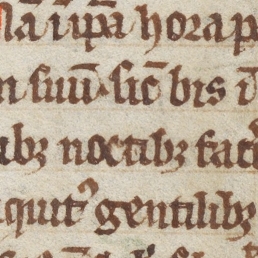 la i ip̄a hora p
n suū sic̄ bis i
ibꝫ noctibꝫ fac
quit᾽ gentilibꝫ